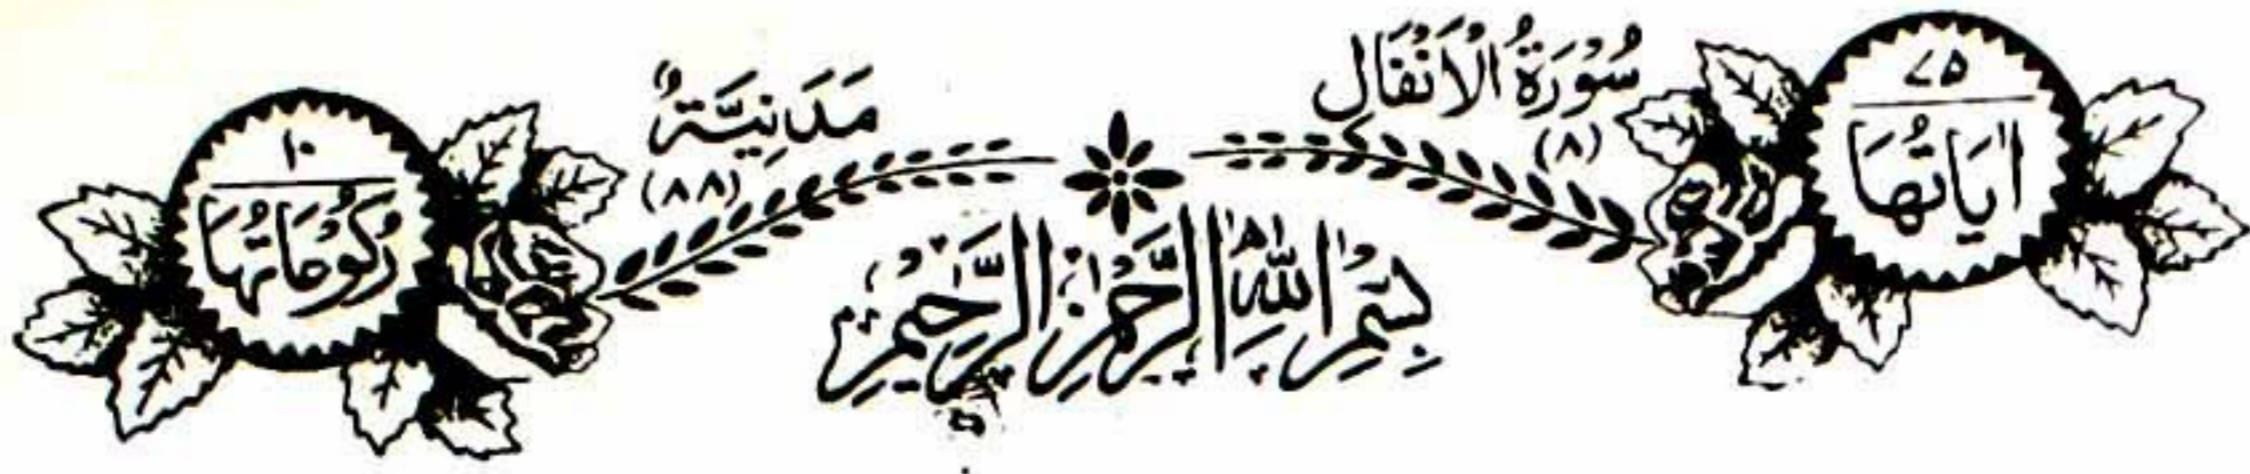 ۷۵
اٰيَاتُهَا
سُوْرَةُ الْاَنْفَال
(۸)
مَدَنِيَّةٌ
(۸۸)
۱۰
رُكُوْعَاتُهَا
بِسْمِ اللّٰهِ الرَّحْمٰنِ الرَّحِيْمِ